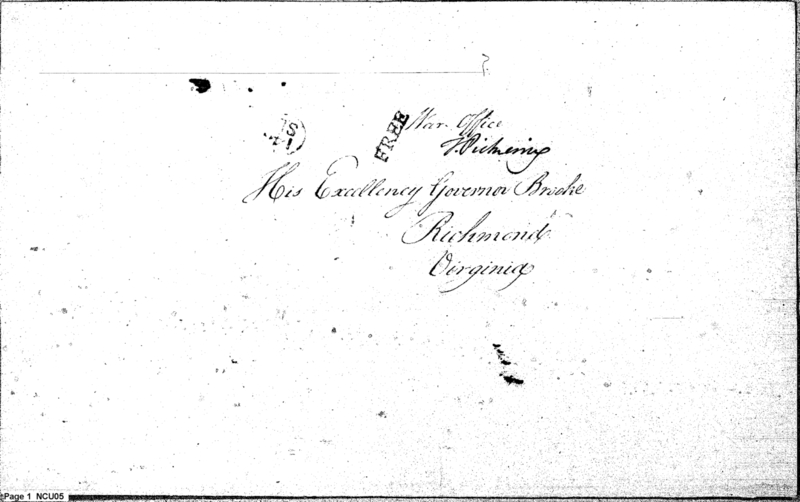 FREE
War Office
T. Pickering
His Excellency Governor Brooke
Richmond
Virginia
Page 1 NCU05